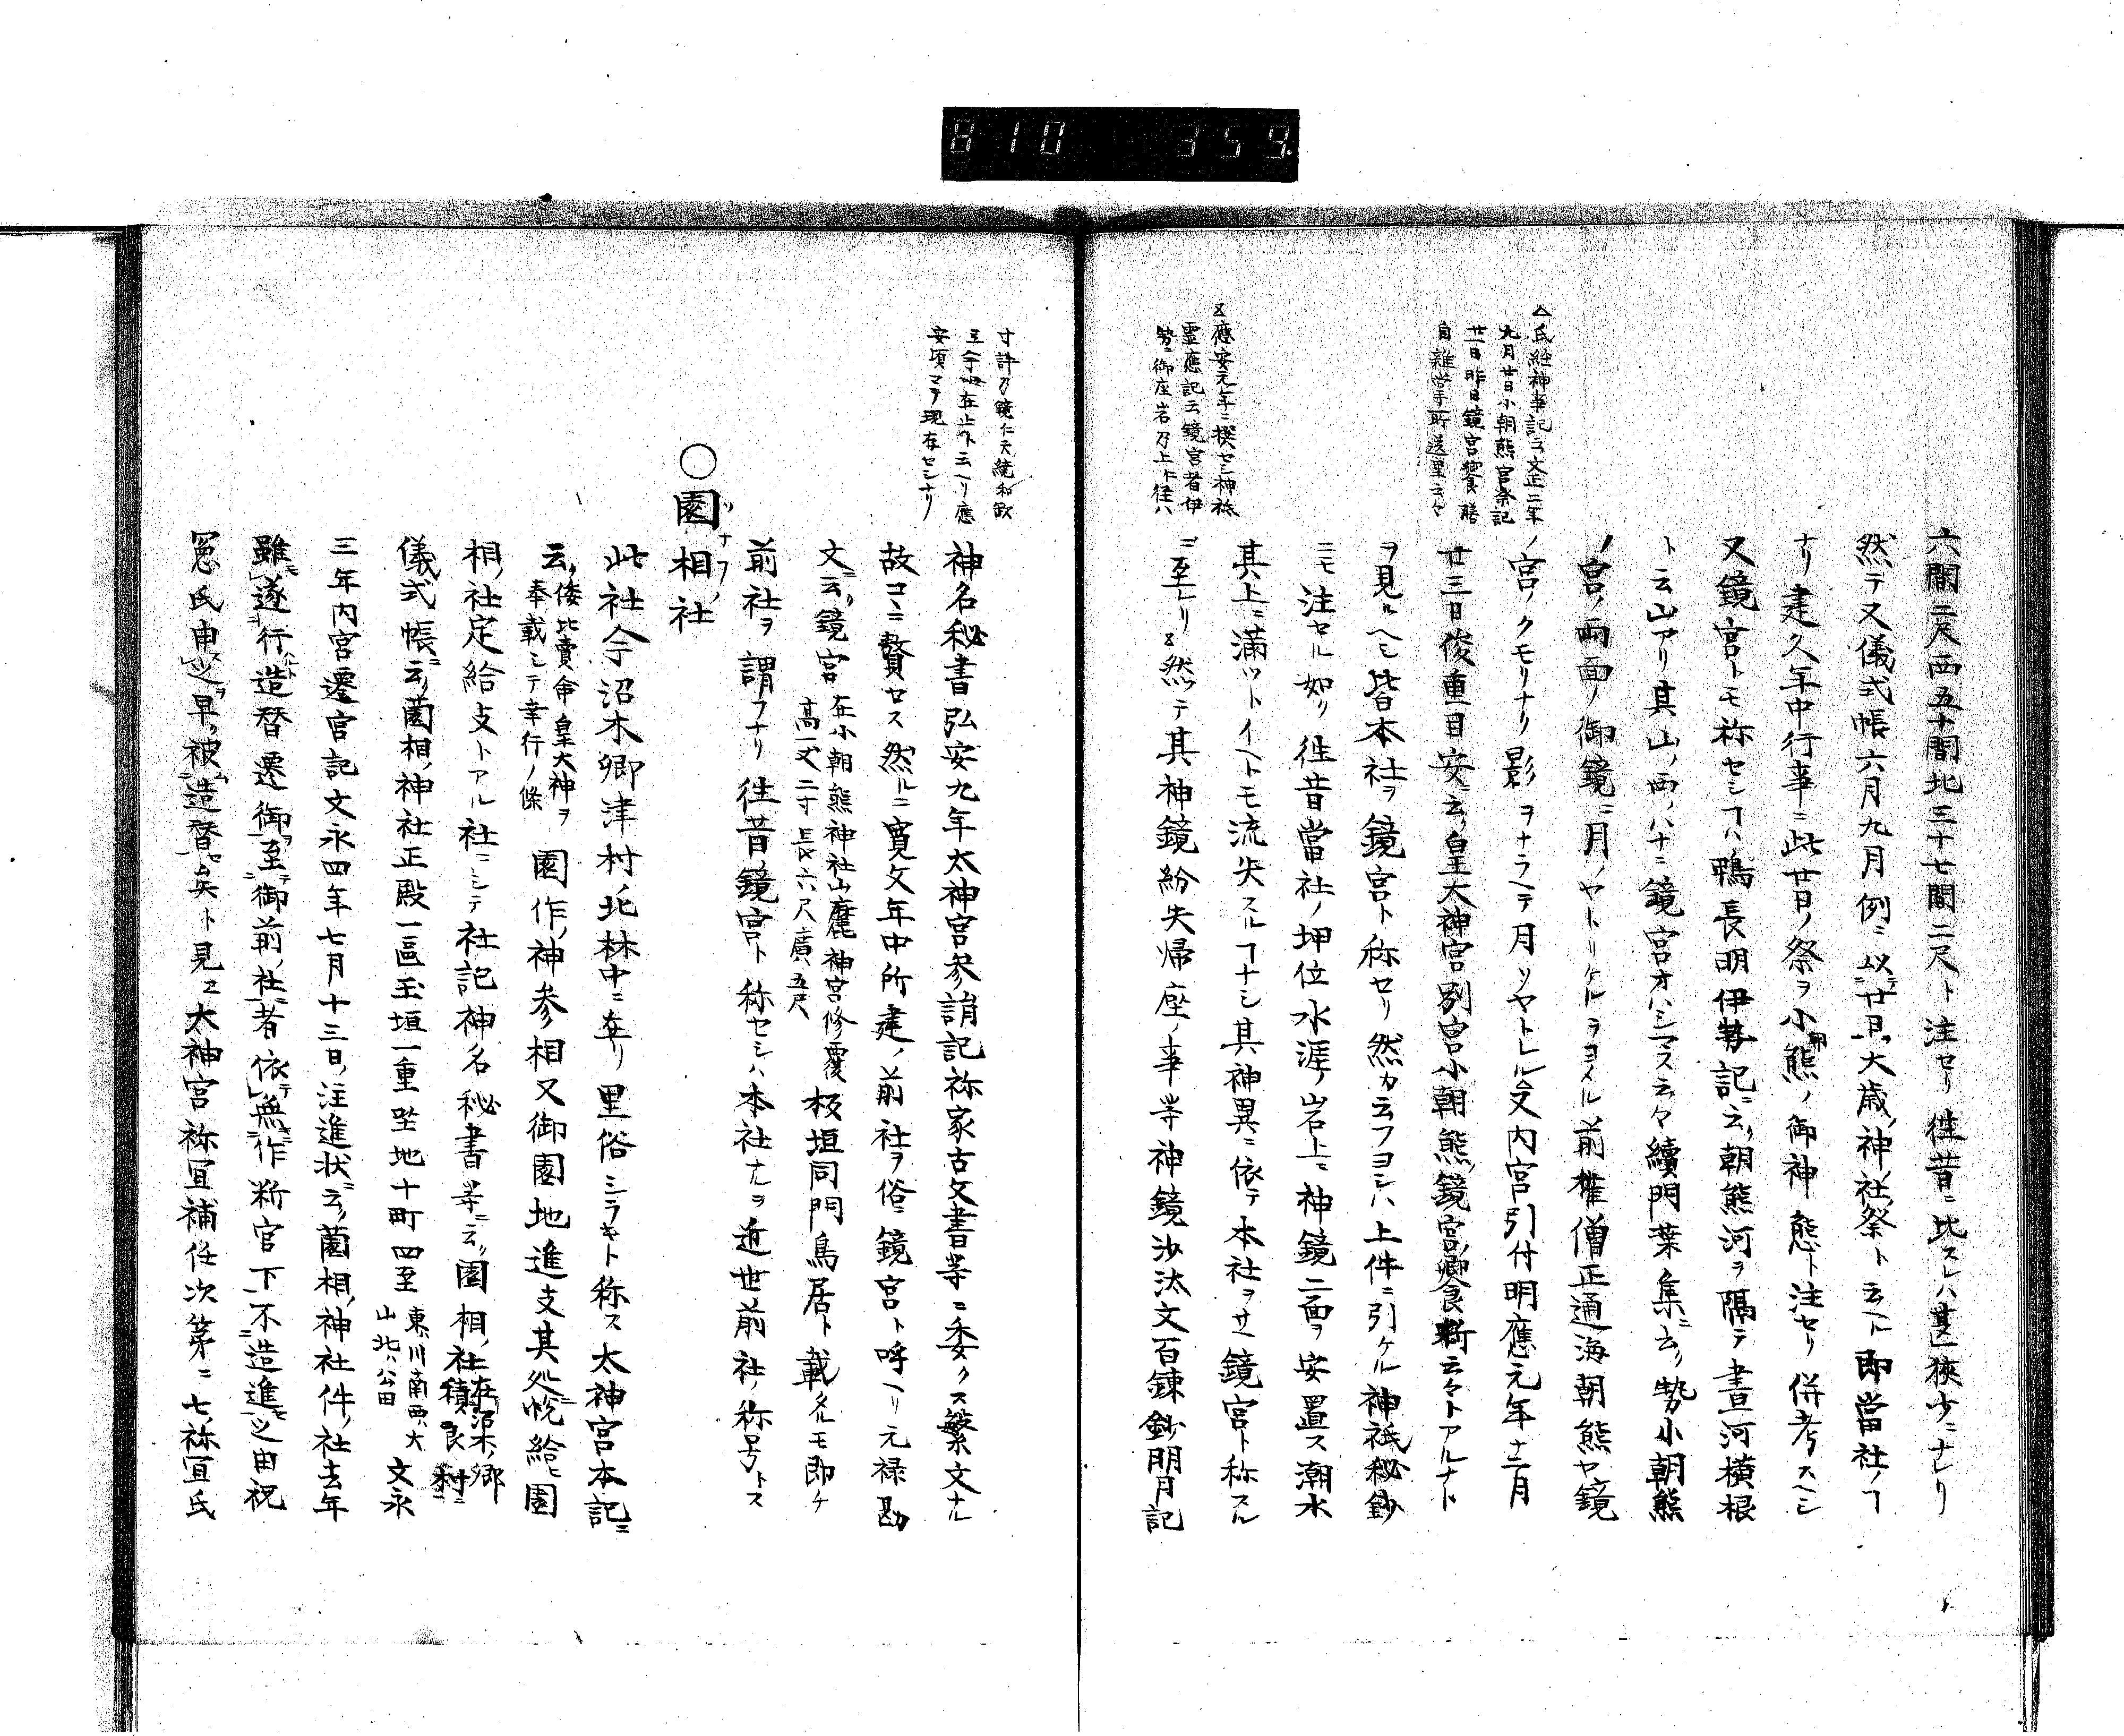 810 359.
六間二尺西五十間北三十七間二尺ト注セリ徃昔ニ比スレハ甚狹少ニナレリ
然テ又儀式帳六月九月例ニ以廿日大歳神社祭ト云ヘト即當社ノヿ
ナリ建久年中行事ニ此廿日ノ祭ヲ小朝熊ノ御神態ト注セリ併考スヘシ
又鏡宮トモ祢セシヿハ鴨長明伊勢記ニ云朝熊河ヲ隔テ晝河横根
ト云山アリ其山ノ西ノハナニ鏡宮オハシマス云々續門葉集ニ云勢小朝熊
ノ宮ノ両面ノ御鏡ニ月ノヤトリケルヲヨメル前權僧正通海朝熊ヤ鏡
△氏経神事記云文正二年
九月廿日小朝熊宮祭記
廿一日昨日鏡宮饗膳
自雜掌手所送里云々
ノ宮ノクモリナリ影ヲナラヘテ月ソヤトレル△又内宮引付明應元年十二月
廿三日俊重目安ニ云皇大神宮別宮小朝熊鏡宮饗料云々トアルナト
ヲ見ルヘシ皆本社ヲ鏡宮ト称セリ然カ云フヨシハ上件ニ引ケル神祇秘鈔
ニモ注セル如リ徃昔當社ノ坤位水涯ノ岩上ニ神鏡二面ヲ安置ス潮水
其上ニ滿ツトイヘトモ流失スルヿナシ其神異ニ依テ本社ヲサヘ鏡宮ト称スル
應安元年ニ撰セシ神祇
霊應記云鏡宮者伊
勢ニ御座岩乃上ト径八
ニ至レリ然ッテ其神鏡紛失帰座ノ事等神鏡沙汰文百錬鈔明月記
寸許乃鏡仁天統和歟
三今毎在止ト云ヘリ應
安頃マテ現在セシナリ
神名秘書弘安九年太神宮参詣記祢家古文書等ニ委クス繁文ナル
故コヽニ贅セス然ルニ寛文年中所建ノ前社ヲ俗ニ鏡宮ト呼ヘリ元禄勘
文ニ云鏡宮在小朝熊神社山麓神宮修覆
高一丈二寸長六尺廣五尺板垣同門鳥居ト載タルモ即ケ
前社ヲ謂フナリ徃昔鏡宮ト称セシハ本社ナルヲ近世前社ノ称号トス
○園相社
此社今沼木郷津村北林中ニ在リ里俗シラキト称ス太神宮本記ニ
云倭比賣命皇大神ヲ
奉載シテ幸行ノ條園作神参相又御園地進支其処悦給ヒ園
相社定給支トアル社ニシテ社記神名秘書等ニ云園相社在沼木郷
積良村ニ
儀式帳ニ云薗相神社正殿一區玉垣一重坐地十町四至東川南西大
山北公田文永
三年内宮遷宮記文永四年七月十三日注進状ニ云薗相神社件社去年
雖遂行造替遷御至御前社者依無作料官下不造進之由祝
冨氏申之早被造替矣ト見エ太神宮祢宜補任次第ニ七祢宜氏